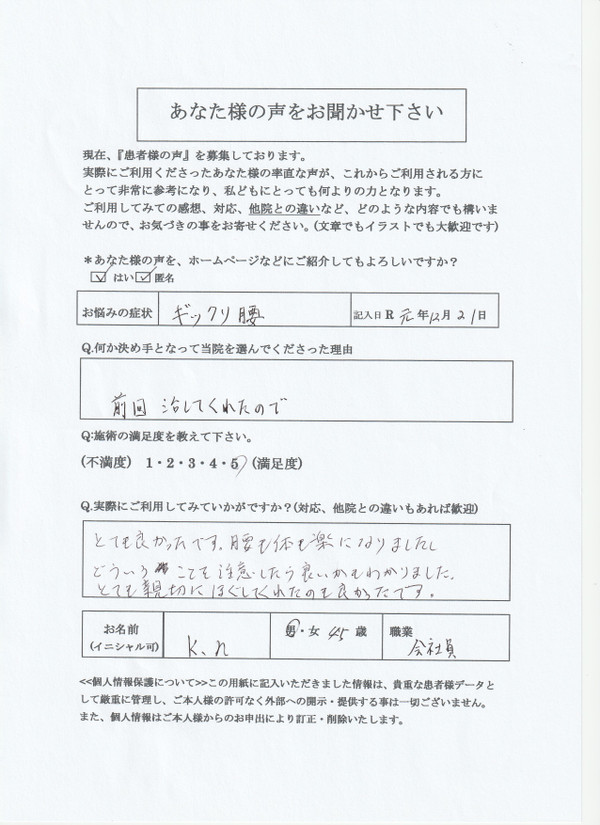 あなた様の声をお聞かせ下さい
現在、『患者様の声』を募集しております。
実際にご利用くださったあなた様の率直な声が、これからご利用される方に
とって非常に参考になり、私どもにとっても何よりの力となります。
ご利用してみての感想、対応、他院との違いなど、どのような内容でも構いま
せんので、お気づきの事をお寄せください。(文章でもイラストでも大歓迎です)
＊あなた様の声を、ホームページなどにご紹介してもよろしいですか？
☑はい☑匿名
お悩みの症状 ギックリ腰 記入日 R 元年12月21日
Q.何か決め手となって当院を選んでくださった理由
前回 治してくれたので
Q:施術の満足度を教えて下さい。
(不満度) 1・2・3・4・5 (満足度)
Q.実際にご利用してみていかがですか？(対応、他院との違いもあれば歓迎)
とても良かったです。腰も体も楽になりましたし
どういう ことを注意したら良いかもわかりました。
とても親切にほぐしてくれたのも良かったです。
お名前
(イニシャル可) K.n 男・女 45 歳 職業 会社員
<<個人情報保護について>>この用紙に記入いただきました情報は、貴重な患者様データと
して厳重に管理し、ご本人様の許可なく外部への開示・提供する事は一切ございません。
また、個人情報はご本人様からのお申出により訂正・削除いたします。